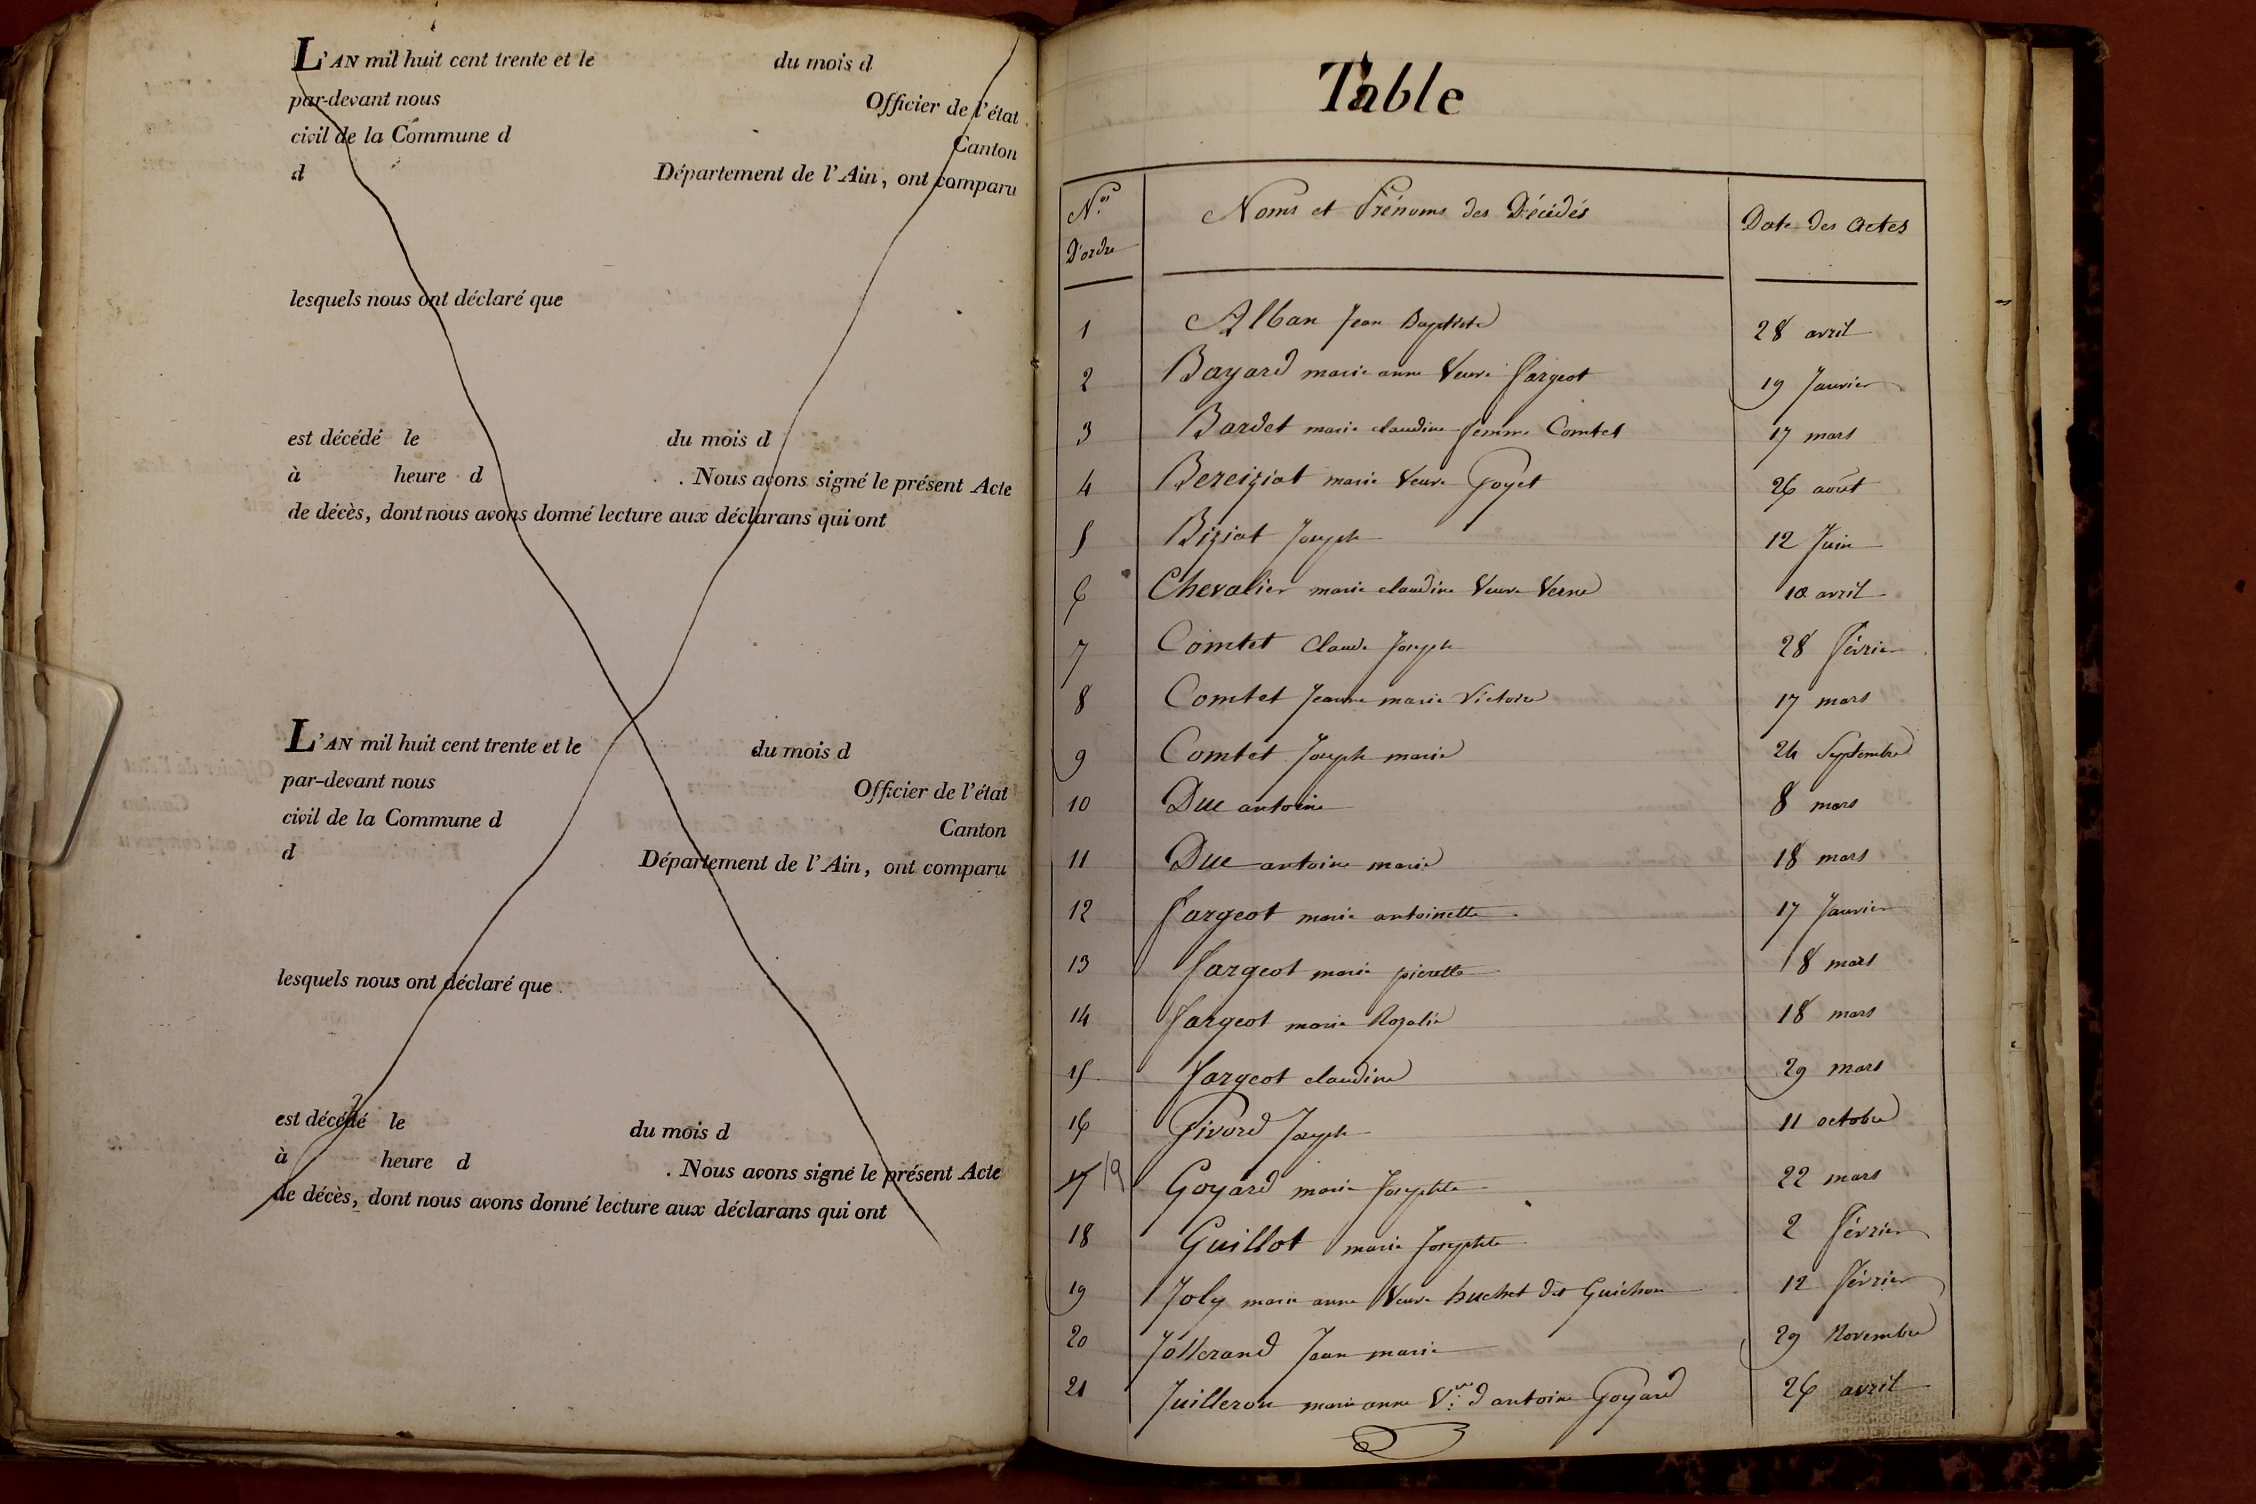 L'AN mil huit cent trente et le du mois d
par-devant nous Officier de l'état
civil de la Commune d Canton
d Département de l'Ain, ont comparu
lesquels nous ont déclaré que
est décédé le du mois d
à heure d . Nous avons signé le présent Acte
de décès, dont nous avons donné lecture aux déclarans qui ont
L'AN mil huit cent trente et le du mois d
par-devant nous Officier de l'état
civil de la Commune d Canton
d Département de l'Ain, ont comparu
lesquels nous ont déclaré que
est décédé le du mois d
à heure d . Nous avons signé le présent Acte
de décès, dont nous avons donné lecture aux déclarans qui ont
Table
N.os D'ordre Noms et Prénoms des Décédés Date des Actes
1 Alban Jean Baptiste 28 avril
2 Bayard marie anne Veuve fargeot 19 Janvier
3 Bardet marie claudine femme Comtet 17 mars
4 Bereiziat marie Veuve Goyet 26 août
5 Biziat Joseph 12 Juin
6 Chevalier marie claudine Veuve Verne 10 avril
7 Comtet Claude Joseph 28 février
8 Comtet Jeanne marie Victoire 17 mars
9 Comtet Joseph marie 24 Septembre
10 Duc antoine 8 mars
11 Duc antoine marie 18 mars
12 fargeot marie antoinette 17 Janvier
13 fargeot marie pierrette 8 mars
14 fargeot marie Rozalie 18 mars
15 fargeot claudine 29 mars
16 Givord Joseph 11 octobre
17 Goyard marie Josephte 22 mars
18 Guillot marie Josephte 2 février
19 Joly marie anne Veuve huchet dit Guichon 12 février
20 Jollerand Jean marie 29 Novembre
21 Juilleron marie anne V.ve d'antoine Goyard 26 avril